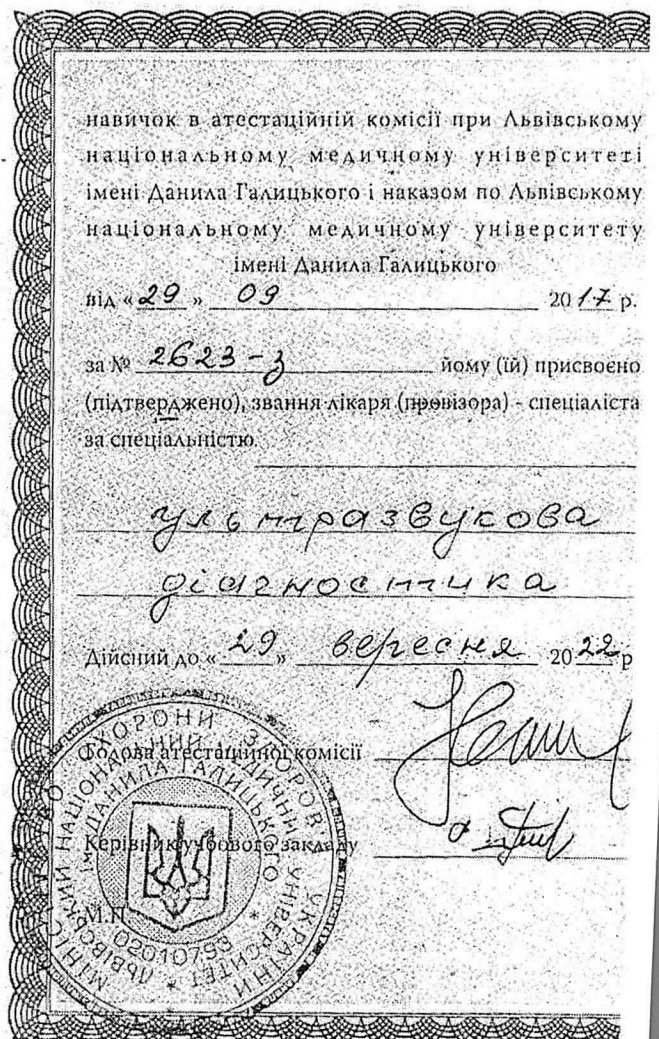 навичок в атестаційній комісії при Львівському
національному медичному університеті
імені Данила Галицького і наказом по Львівському
національному медичному університету
імені Данила Галицького
від « 29 » 09 20 17 р.
за № 2623-з йому (їй) присвоєно
(підтверджено), звання лікаря (провізора) - спеціаліста
за спеціальністю
ультразвукова
діагностика
Дійсний до « 29 » вересня 20 22 р
Голова атестаційної комісії
Керівник учбового закладу
М.П.
МІНІС ВО ОХОРОНИ ЗДОРОВ УКРАЇНИ
ЛЬВІВСЬКИЙ НАЦІОНАЛЬНИЙ МЕДИЧНИЙ УНІВЕРСИТЕТ
ІМ. ДАНИЛА ГАЛИЦЬКОГО
02010793